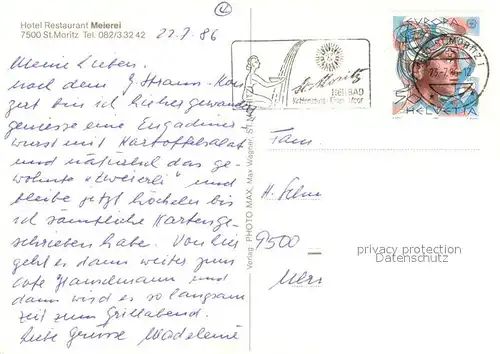 Hotel Restaurant Meierei
7500 St.Moritz Tel. 082/3 32 42
22.7.86
Meine Lieben.
Nach dem J. Strauss-Kon-
zert bin ich hieher gewandert
geniesse eine Engadiner
wurst mit Kartoffelsalat
und natürlich das ge-
wohnte "Zweierli" und
bleibe jetzt höcheln bis
ich sämtliche Karten ge-
schrieben habe. Von hier
geht es dann weiter zum
Café Hanselmann und
dann wird es so langsam
Zeit zum Grillabend.
Liebe Grüsse Madeleine
Verlag: PHOTO MAX, Max Wagner, ST. MORITZ
St. Moritz
HEILBAD
EUROPA
HELVETIA
ST. MORITZ 1
Fam.
9500
privacy protection
DokuSammler